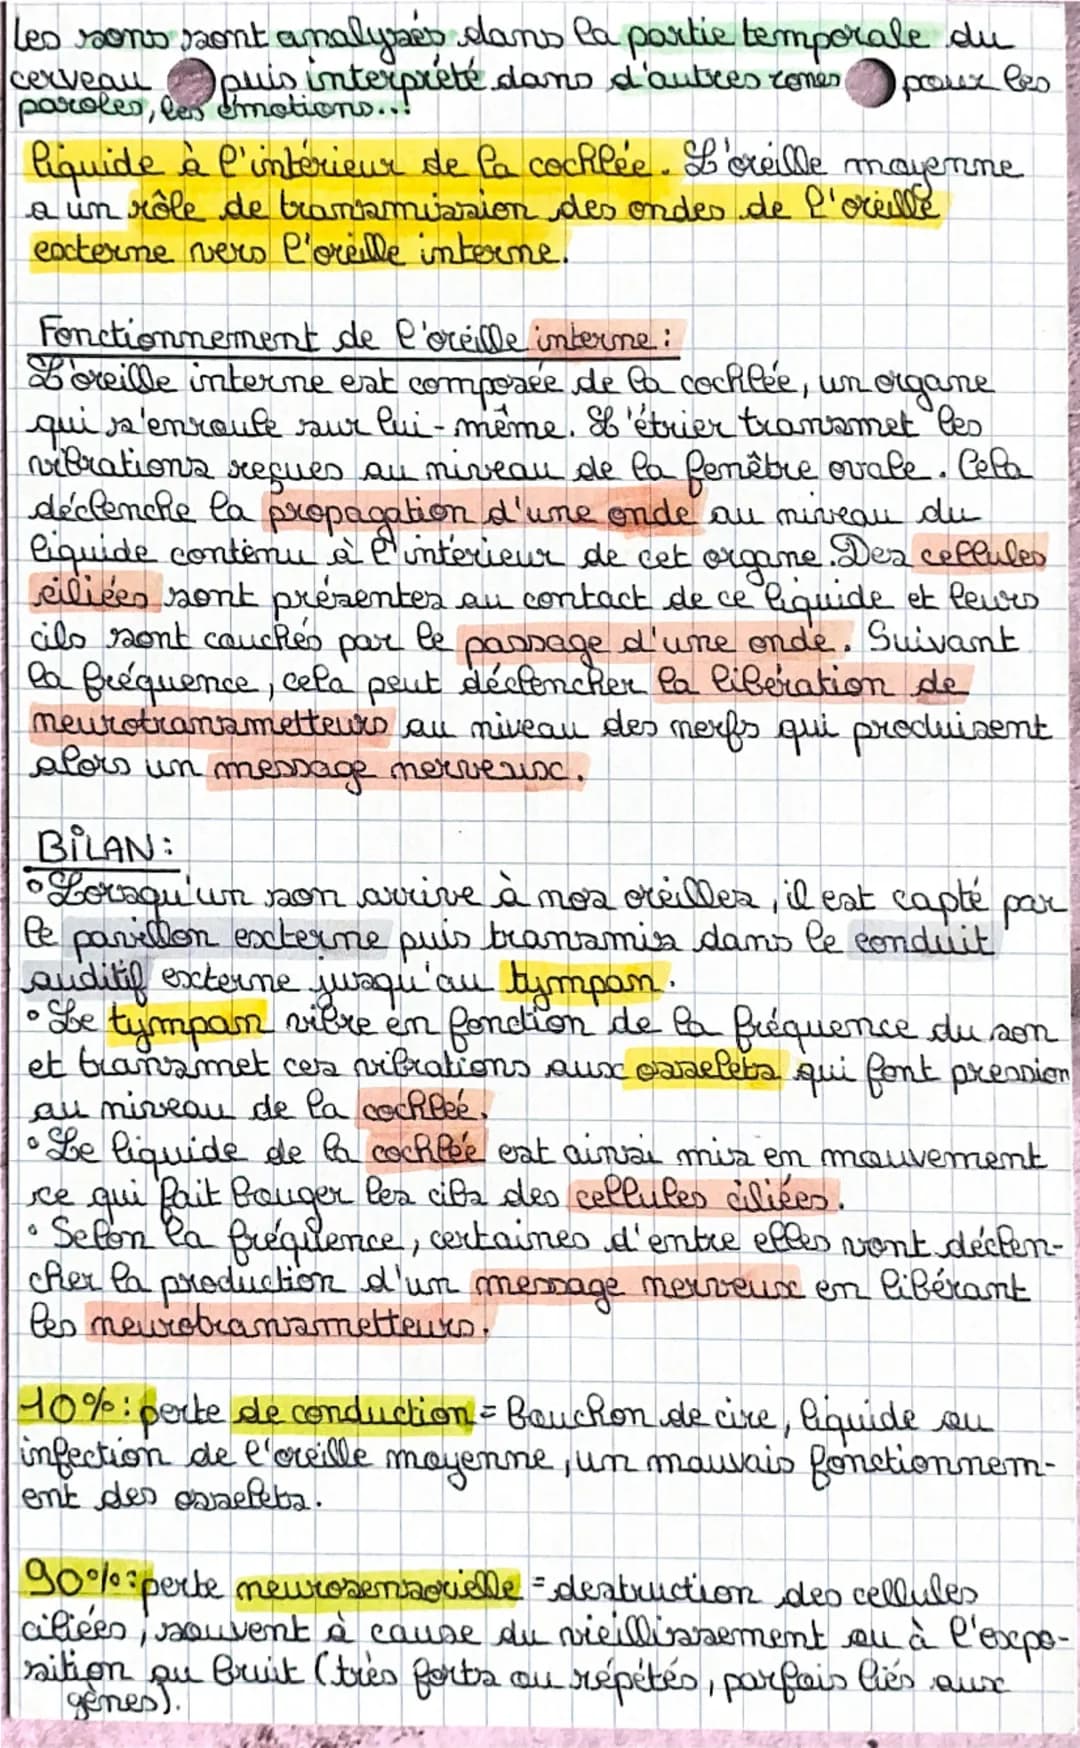 les sons sont analysés dans la partie temporale du
cerveau puis interprété dans d'autres zones pour les
paroles, les émotions...!
liquide à l'intérieur de la cochlée. L'oreille moyenne
a un rôle de transmission des ondes de l'oreille
externe vers l'oreille interne.
Fonctionnement de l'oreille interne :
L'oreille interne est composée de la cochlée, un organe
qui s'enroule sur lui-même. L'étrier transmet les
vibrations reçues au niveau de la fenêtre ovale. Cela
déclenche la propagation d'une onde au niveau du
liquide contenu à l'intérieur de cet organe. Des cellules
ciliées sont présentes au contact de ce liquide et leurs
cils sont couchés par le passage d'une onde. Suivant
la fréquence, cela peut déclencher la libération de
neurotransmetteurs au niveau des nerfs qui produisent
alors un message nerveux.
BILAN :
• Lorsqu'un son arrive à nos oreilles, il est capté par
le pavillon externe puis transmis dans le conduit
auditif externe jusqu'au tympan.
• Le tympan vibre en fonction de la fréquence du son
et transmet ces vibrations aux osselets qui font pression
au niveau de la cochleé.
• Le liquide de la cochleé est ainsi mis en mouvement
ce qui fait bouger les cils des cellules ciliées.
• Selon la fréquence, certaines d'entre elles vont déclen-
cher la production d'un message nerveux en libérant
les neurotransmetteurs.
10% : perte de conduction = Bouchon de cire, liquide ou
infection de l'oreille moyenne, un mauvais fonctionnem-
ent des osselets.
90% : perte neurosensorielle = destruction des cellules
ciliées, souvent à cause du vieillissement ou à l'expo-
sition au bruit (très forts ou répétés, parfois liés aux
gènes).